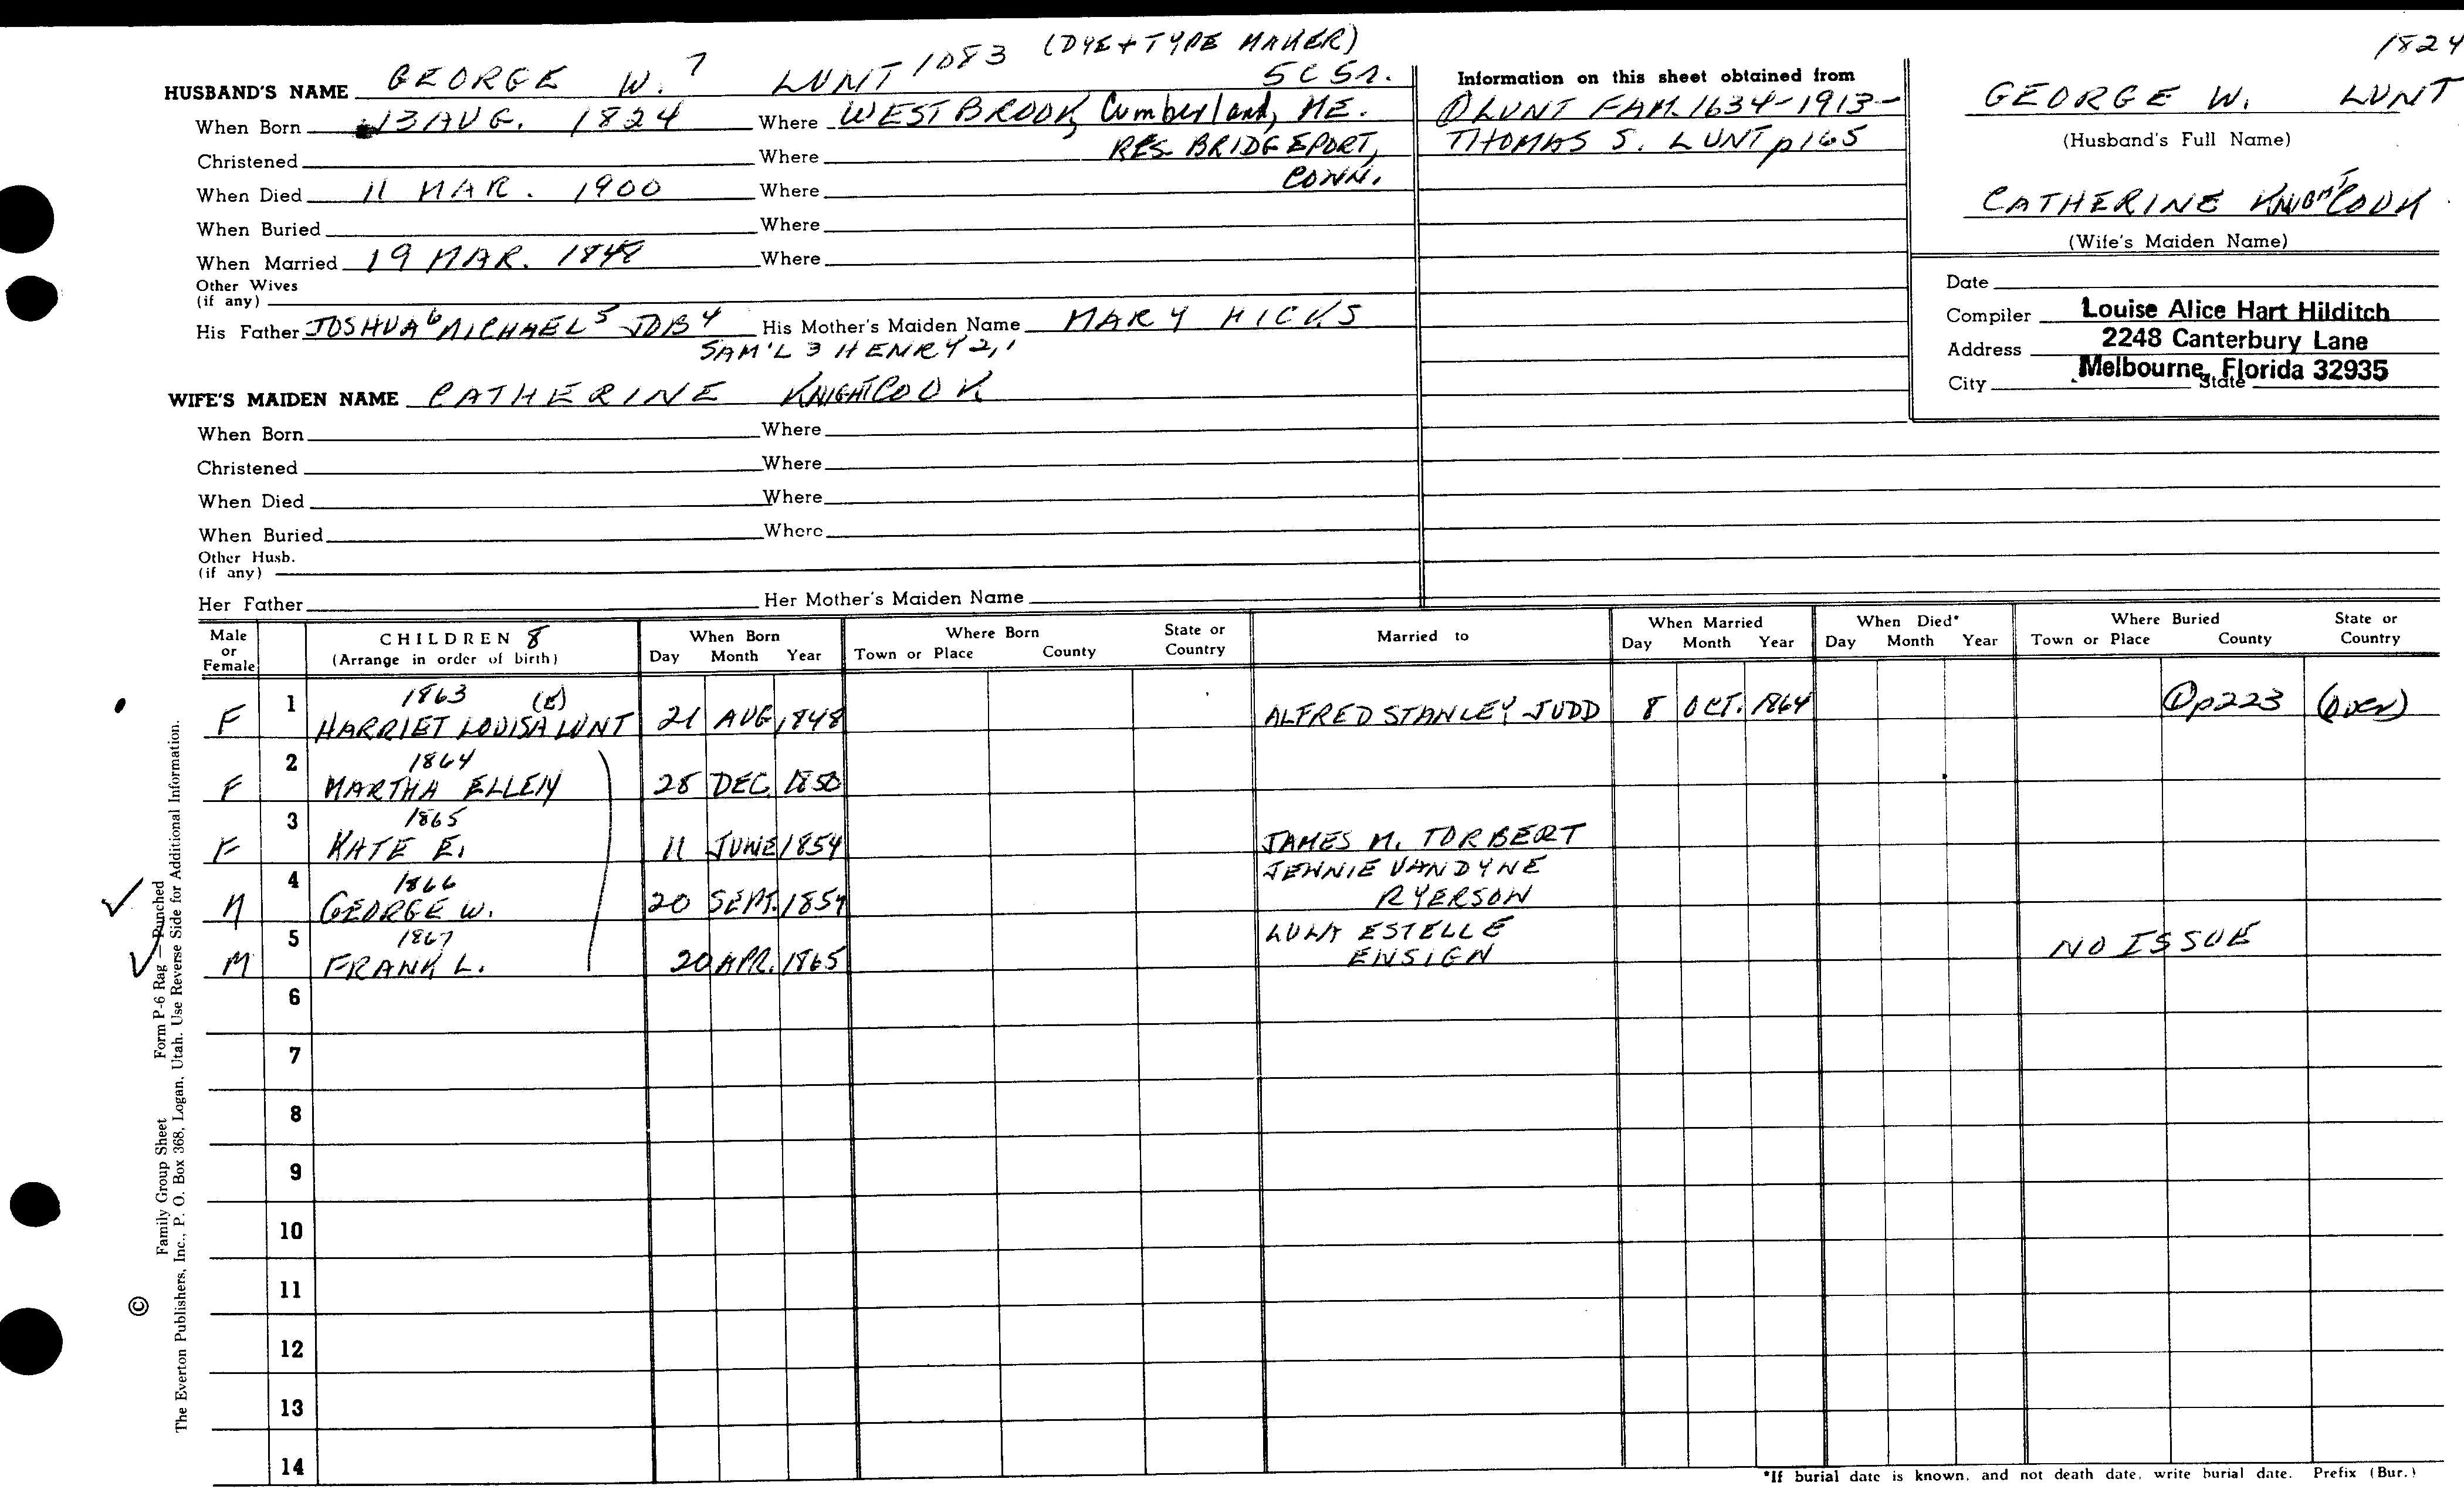 1083 (DYE + TYPE MAKER) 1824
HUSBAND'S NAME GEORGE W. 7 LUNT 5C5r.
When Born 13 AUG. 1824 Where WESTBROOK, Cumberland, ME.
Christened Where RES. BRIDGEPORT,
When Died 11 MAR. 1900 Where CONN.
When Buried Where
When Married 19 MAR. 1848 Where
Other Wives
(if any)
His Father JOSHUA 6 MICHAEL 5 JOB 4 His Mother's Maiden Name MARY HICKS
SAM'L 3 HENRY 2,1
WIFE'S MAIDEN NAME CATHERINE KNIGHT COOK
When Born Where
Christened Where
When Died Where
When Buried Where
Other Husb.
(if any)
Her Father Her Mother's Maiden Name
Information on this sheet obtained from
① LUNT FAM. 1634-1913-
THOMAS S. LUNT p165
GEORGE W. LUNT
(Husband's Full Name)
CATHERINE KNIGHT COOK
(Wife's Maiden Name)
Date
Compiler Louise Alice Hart Hilditch
Address 2248 Canterbury Lane
City Melbourne, Florida 32935 State
Male or Female CHILDREN 8 (Arrange in order of birth) When Born Day Month Year Where Born Town or Place County State or Country Married to When Married Day Month Year When Died* Day Month Year Where Buried Town or Place County State or Country
1863
F 1 HARRIET LOUISA LUNT 21 AUG. 1848 ALFRED STANLEY JUDD 8 OCT. 1864 ① p223 (over)
1864
F 2 MARTHA ELLEN 28 DEC. 1850
1865
F 3 KATE E. 11 JUNE 1854 JAMES M. TORBERT
1866 JENNIE VANDYNE
M 4 GEORGE W. 20 SEPT. 1857 RYERSON
1867 LULA ESTELLE
M 5 FRANK L. 20 APR. 1865 ENSIGN NO ISSUE
6
7
8
9
10
11
12
13
14
*If burial date is known, and not death date, write burial date. Prefix (Bur.)
© Family Group Sheet Form P-6 Rag — Punched
The Everton Publishers, Inc., P. O. Box 368, Logan, Utah. Use Reverse Side for Additional Information.